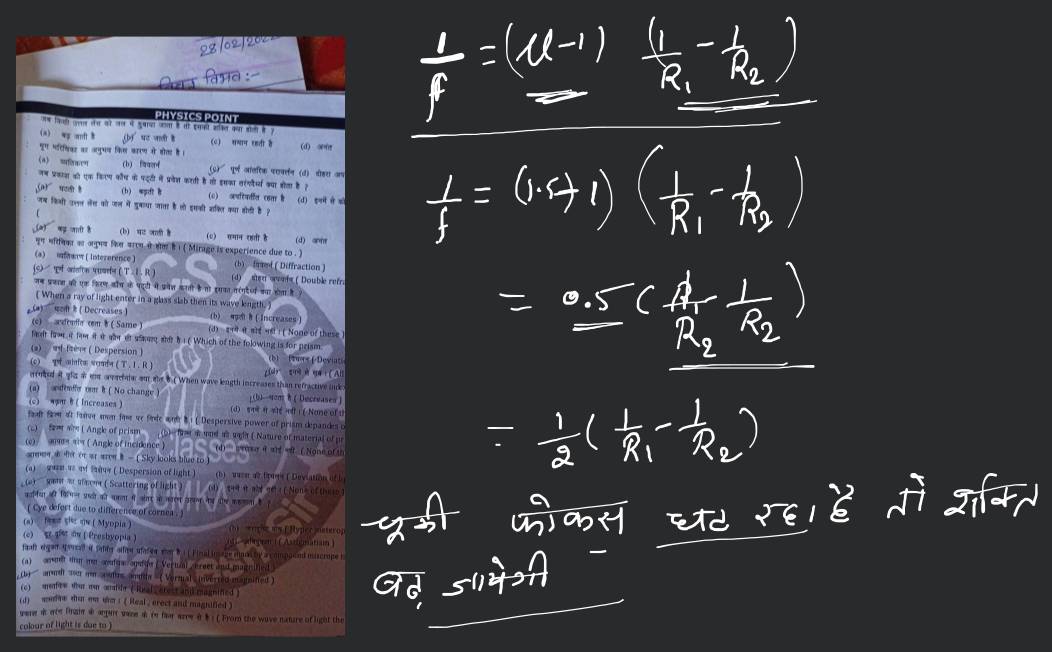 28/02/202
विभव :-
PHYSICS POINT
जब किसी उत्तल लेंस को जल में डुबाया जाता है तो इसकी शक्ति क्या होती है ?
(a) बढ़ जाती है (b) घट जाती है (c) समान रहती है (d) अनंत
मृग मरिचिका का अनुभव किस कारण से होता है।
(a) व्यतिकरण (b) विवर्तन (c) पूर्ण आंतरिक परावर्तन (d) दोहरा अप
जब प्रकाश की एक किरण काँच के पट्टी में प्रवेश करती है तो इसका तरंगदैर्ध्य क्या होता है ?
(a) घटती है (b) बढ़ती है (c) अपरिवर्तित रहता है (d) इनमें से को
जब किसी उत्तल लेंस को जल में डुबाया जाता है तो इसकी शक्ति क्या होती है ?
(
(a) बढ़ जाती है (b) घट जाती है (c) समान रहती है (d) अनंत
मृग मरिचिका का अनुभव किस कारण से होता है। ( Mirage is experience due to . )
(a) व्यतिकरण ( Intererence ) (b) विवर्तन ( Diffraction )
(c) पूर्ण आंतरिक परावर्तन ( T . I . R ) (d) दोहरा अपवर्तन ( Double refra
जब प्रकाश की एक किरण काँच के पट्टी में प्रवेश करती है तो इसका तरंगदैर्ध्य क्या होता है ?
( When a ray of light enter in a glass slab then its wave length. )
(a) घटती है ( Decreases ) (b) बढ़ती है ( Increases )
(c) अपरिवर्तित रहता है ( Same ) (d) इनमें से कोई नहीं । ( None of these )
किसी प्रिज्म में निम्न में से कौन सी प्रक्रियाए होती है। ( Which of the folowing is for prism.
(a) वर्ण विक्षेपन ( Despersion ) (b) विचलन ( Deviati
(c) पूर्ण आंतरिक परावर्तन ( T . I . R ) (d) इनमें से सभी । ( All
तरंगदैर्ध्य में वृद्धि के साथ अपवर्तनांक क्या होत है ( When wave length increases than refractive inde
(a) अपरिवर्तित रहता है ( No change ) (b) घटता है ( Decreases )
(c) बढ़ता है ( Increases ) (d) इनमें से कोई नहीं । ( None of th
किसी प्रिज्म की विक्षेपन क्षमता निम्न पर निर्भर करती है। ( Despersive power of prism depandes o
(a) प्रिज्म कोण ( Angle of prism (b) प्रिज्म के पदार्थ की प्रकृति ( Nature of material of pr
(c) आपतन कोण ( Angle of incidence ) (d) उपरोक्त में कोई नहीं ( None of th
आसमान के नीले रंग का कारण है - ( Sky looks blue to )
(a) प्रकाश का वर्ण विक्षेपन ( Despersion of light ) (b) प्रकाश की विचलन ( Deviation of li
(c) प्रकाश का प्रकिर्णन ( Scattering of light ) (d) इनमें से कोई नहीं । ( None of these )
( Cye defect due to difference of cornea . )
(a) निकट दृष्टि दोष ( Myopia ) ( Hyper meterop
(c) दूर दृष्टि दोष ( Presbyopia ) ( Astigmatism )
किसी संयुक्त सूक्ष्मदर्शी में निर्मित अंतिम प्रतिबिंब होता है। ( Final image made by a compound miscrope is
(a) आभासी सीधा तथा आवर्धित ( Vertual , ereet and magnified )
(b) आभासी उल्टा तथा आवर्धित ( Vertual , inverted magnified )
(c) वास्तविक सीधा तथा आवर्धित ( Real , erect and magnified )
(d) वास्तविक सीधा तथा छोटा । ( Real , erect and magnified )
प्रकाश के तरंग सिद्धांत के अनुसार प्रकाश के रंग किस कारण से है। ( From the wave nature of light the
colour of light is due to )
1/f = (μ-1) (1/R₁ - 1/R₂)
1/f = (1.5-1) (1/R₁ - 1/R₂)
= 0.5 (1/R₂ - 1/R₂)
= 1/2 (1/R₁ - 1/R₂)
चूकी फोकस घट रहा है तो शक्ति
बढ़ जायेगी